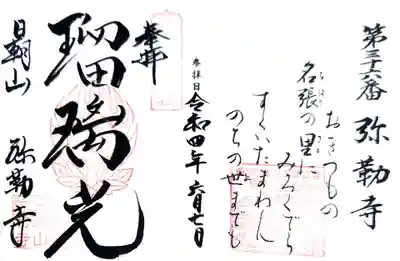 第三十六番 弥勒寺
おきつもの
名張の里に
みろくでら
すくいたまわん
のちの世までも
参拝日
令和四年六月七日
奉拝
瑠璃光
日朝山
弥勒寺